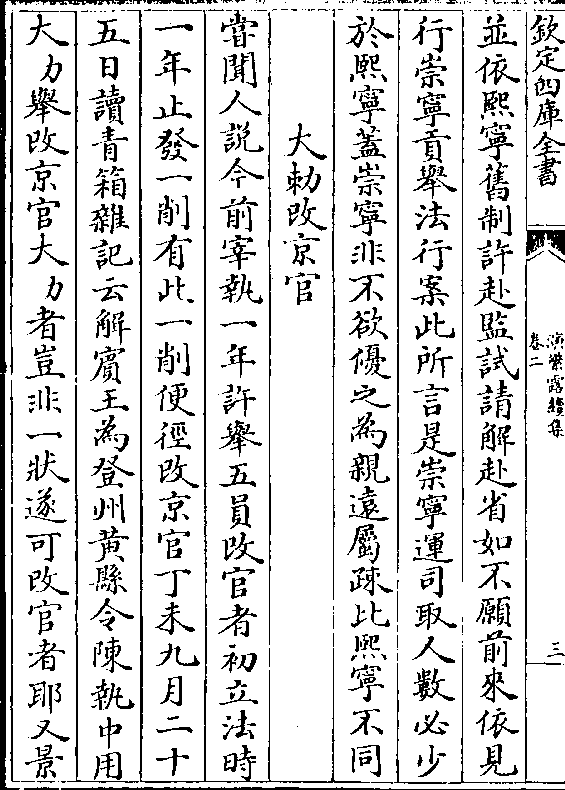 欽定四庫全書
演繁露續集
卷二
三
並依熙寧舊制許赴監試請解赴省如不願前來依見
行崇寧貢舉法行案此所言是崇寧運司取人數必少
於熙寧蓋崇寧非不欲優之為親遠屬疎比熙寧不同
大勅改京官
甞聞人説今前宰執一年許舉五員改官者初立法時
一年止發一削有此一削便徑改京官丁未九月二十
五日讀青箱雜記云解賔王為登州黄縣令陳執中用
大力舉改京官大力者豈非一狀遂可改官者耶又景